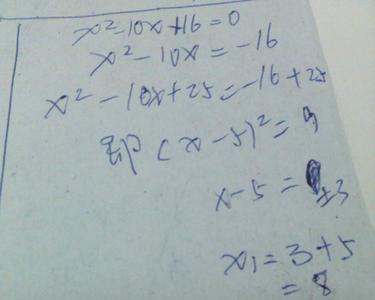 x²-10x+16=0
x²-10x=-16
x²-10x+25=-16+25
即(x-5)²=9
x-5=±3
x₁=3+5
=8